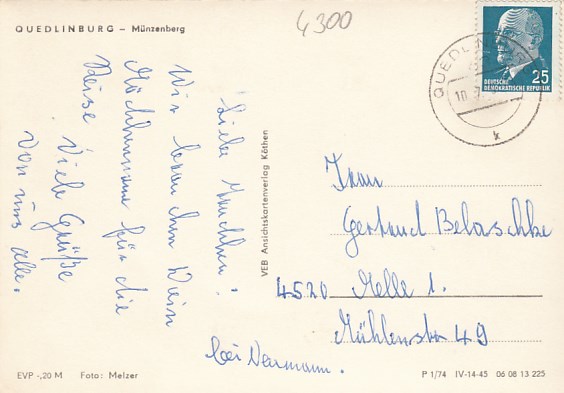 QUEDLINBURG – Münzenberg
4300
QUEDLINBURG
10.
k
DEUTSCHE
DEMOKRATISCHE REPUBLIK
25
Liebe
Wir brauchen Dein
für die
Reise. Viele Grüße
von uns alle.
VEB Ansichtskartenverlag Köthen
Frau
Gertrud Belaschke
4520 Melle 1.
Mühlenstr 49
bei Neumann.
EVP -,20 M Foto: Melzer
P 1/74 IV-14-45 06 08 13 225